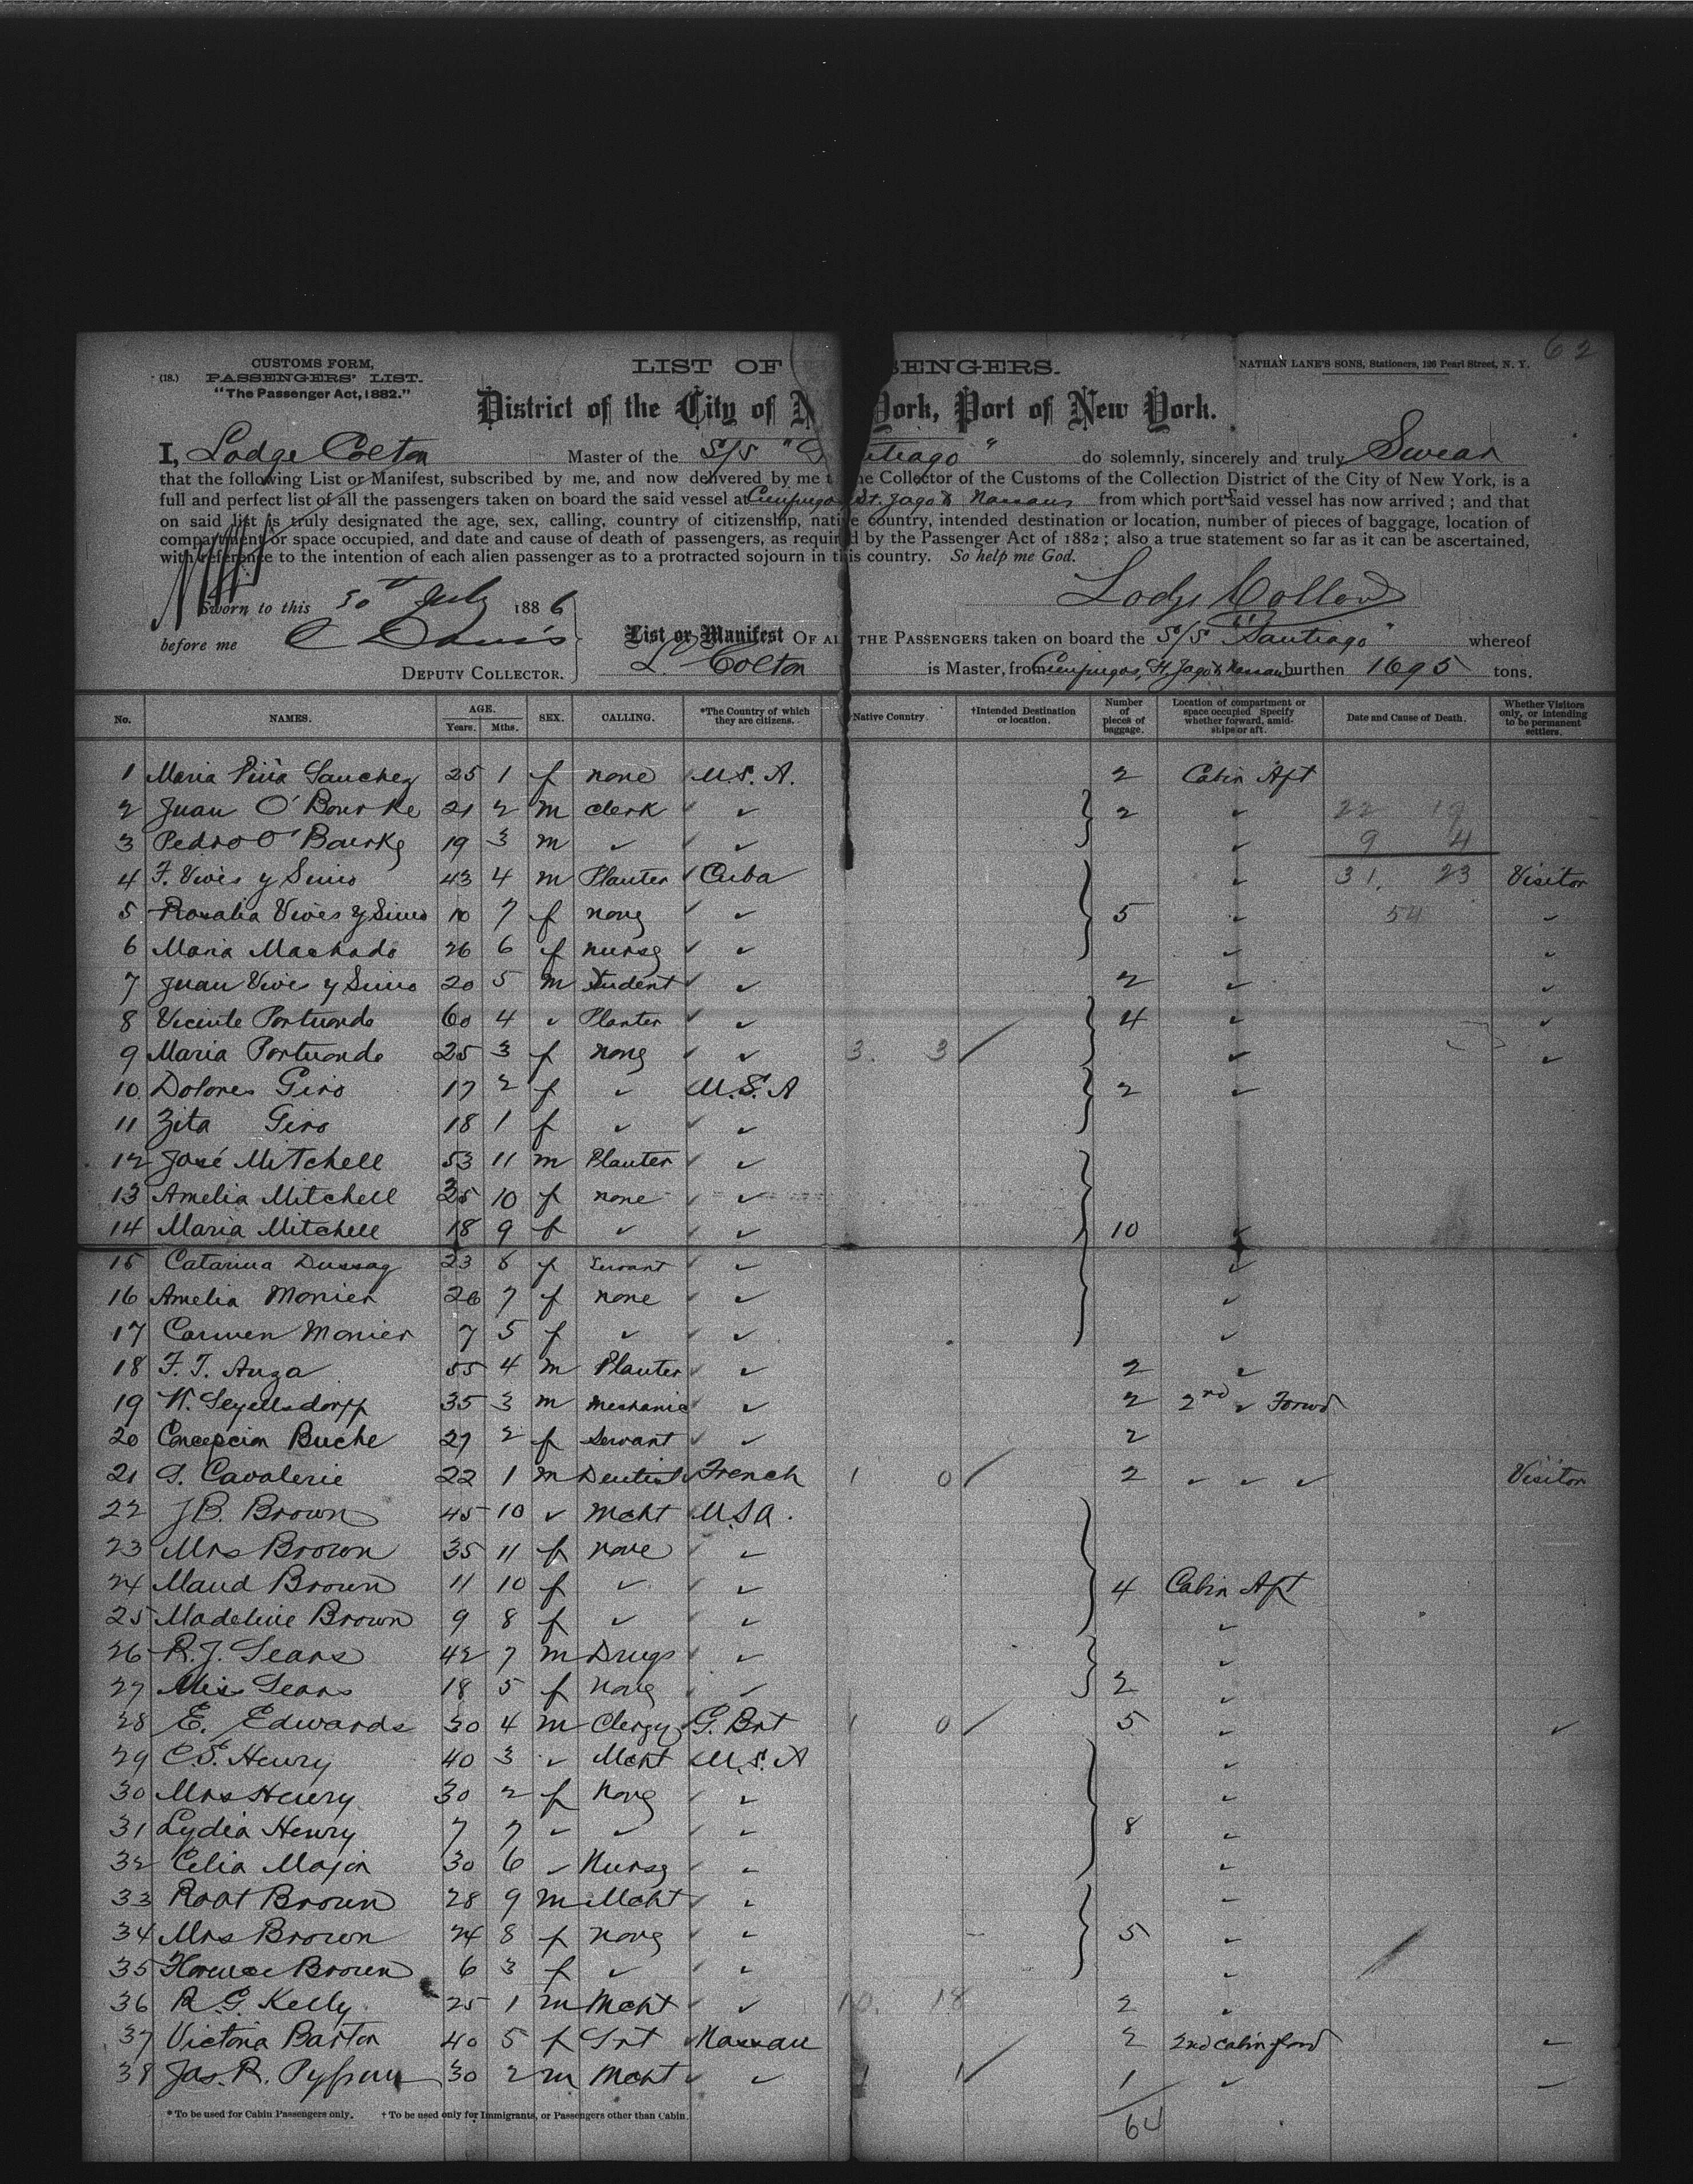 62
CUSTOMS FORM,
(18.) PASSENGERS' LIST.
"The Passenger Act, 1882."
LIST OF SENGERS.
NATHAN LANE'S SONS, Stationers, 126 Pearl Street, N. Y.
District of the City of N York, Port of New York.
I, Lodge Colton Master of the S/S "S ntiago" do solemnly, sincerely and truly Swear
that the following List or Manifest, subscribed by me, and now delivered by me t he Collector of the Customs of the Collection District of the City of New York, is a
full and perfect list of all the passengers taken on board the said vessel at Cienfuegos St. Jago & Nassau from which ports said vessel has now arrived; and that
on said list is truly designated the age, sex, calling, country of citizenship, native country, intended destination or location, number of pieces of baggage, location of
compartment or space occupied, and date and cause of death of passengers, as required by the Passenger Act of 1882; also a true statement so far as it can be ascertained,
with reference to the intention of each alien passenger as to a protracted sojourn in this country. So help me God.
Lodge Colton
Sworn to this 30th July 1886
before me C Davis
DEPUTY COLLECTOR.
List or Manifest OF ALL THE PASSENGERS taken on board the S/S "Santiago" whereof
L Colton is Master, from Cienfuegos, St. Jago & Nassau burthen 1695 tons.
No. NAMES. AGE. Years. Mths. SEX. CALLING. *The Country of which they are citizens. Native Country. †Intended Destination or location. Number of pieces of baggage. Location of compartment or space occupied Specify whether forward, amidships or aft. Date and Cause of Death. Whether Visitors only, or intending to be permanent settlers.
1 Maria Piña Sanchez 25 1 f none U.S.A. 2 Cabin Aft
2 Juan O'Bourke 21 2 m clerk ✓ ✓ 2 ✓ 22 19
3 Pedro O'Bourke 19 3 m ✓ ✓ ✓ 9 4
4 F. Vives y Simo 43 4 m Planter ✓ Cuba ✓ 31. 23 Visitor
5 Rosalia Vives y Simo 10 7 f none ✓ ✓ 5 ✓ 54 ✓
6 Maria Machado 26 6 f nurse ✓ ✓ ✓ ✓
7 Juan Vives y Simo 20 5 m Student ✓ ✓ 2 ✓ ✓
8 Vicente Portuondo 60 4 ✓ Planter ✓ ✓ 4 ✓ ✓
9 Maria Portuondo 25 3 f none ✓ ✓ 3. 3 ✓ ✓
10 Dolores Giro 17 2 f ✓ U.S.A 2 ✓
11 Zita Giro 18 1 f ✓ ✓ ✓
12 José Mitchell 53 11 m Planter ✓ ✓
13 Amelia Mitchell 35 10 f none ✓ ✓
14 Maria Mitchell 18 9 f ✓ ✓ ✓ 10 ✓
15 Catarina Dussaq 23 8 f Servant ✓ ✓
16 Amelia Monier 26 7 f none ✓ ✓ ✓
17 Carmen Monier 7 5 f ✓ ✓ ✓ ✓
18 F. T. Auza 55 4 m Planter ✓ ✓ 2 ✓
19 35 3 m Mechanic ✓ 2 2nd ✓ Forwd
20 Concepcion Buche 27 2 f Servant ✓ ✓ 2
21 Cavalerie 22 1 m Dentist French 1 0 2 ✓ ✓ ✓ Visitor
22 J B. Brown 45 10 ✓ Mcht U.S.A.
23 Mrs Brown 35 11 f none ✓ ✓
24 Maud Brown 11 10 f ✓ ✓ ✓ 4 Cabin Aft
25 Madeline Brown 9 8 f ✓ ✓ ✓ ✓
26 R. J. Sears 42 7 m Drugs ✓ ✓ ✓
27 Mis Sears 18 5 f none ✓ ✓ 2 ✓
28 E. Edwards 30 4 m Clergy G. Brt 1 0 5 ✓ ✓
29 C. S. Henry 40 3 ✓ Mcht U.S.A ✓
30 Mrs Henry 30 2 f none ✓ ✓ ✓
31 Lydia Henry 7 7 ✓ ✓ ✓ ✓ 8 ✓
32 Celia Major 30 6 ✓ Nurse ✓ ✓ ✓
33 Robt Brown 28 9 m Mcht ✓ ✓
34 Mrs Brown 24 8 f none ✓ ✓ 5 ✓
35 Florence Brown 6 3 f ✓ ✓ ✓ ✓
36 R. G. Kelly 25 1 m Mcht ✓ ✓ 10. 18 2 ✓
37 Victoria Barton 40 5 f Srt Nassau 2 2nd cabin ford ✓
38 Jas. R. 30 2 m Mcht ✓ ✓ 1 1 1 ✓
64
* To be used for Cabin Passengers only. † To be used only for Immigrants, or Passengers other than Cabin.